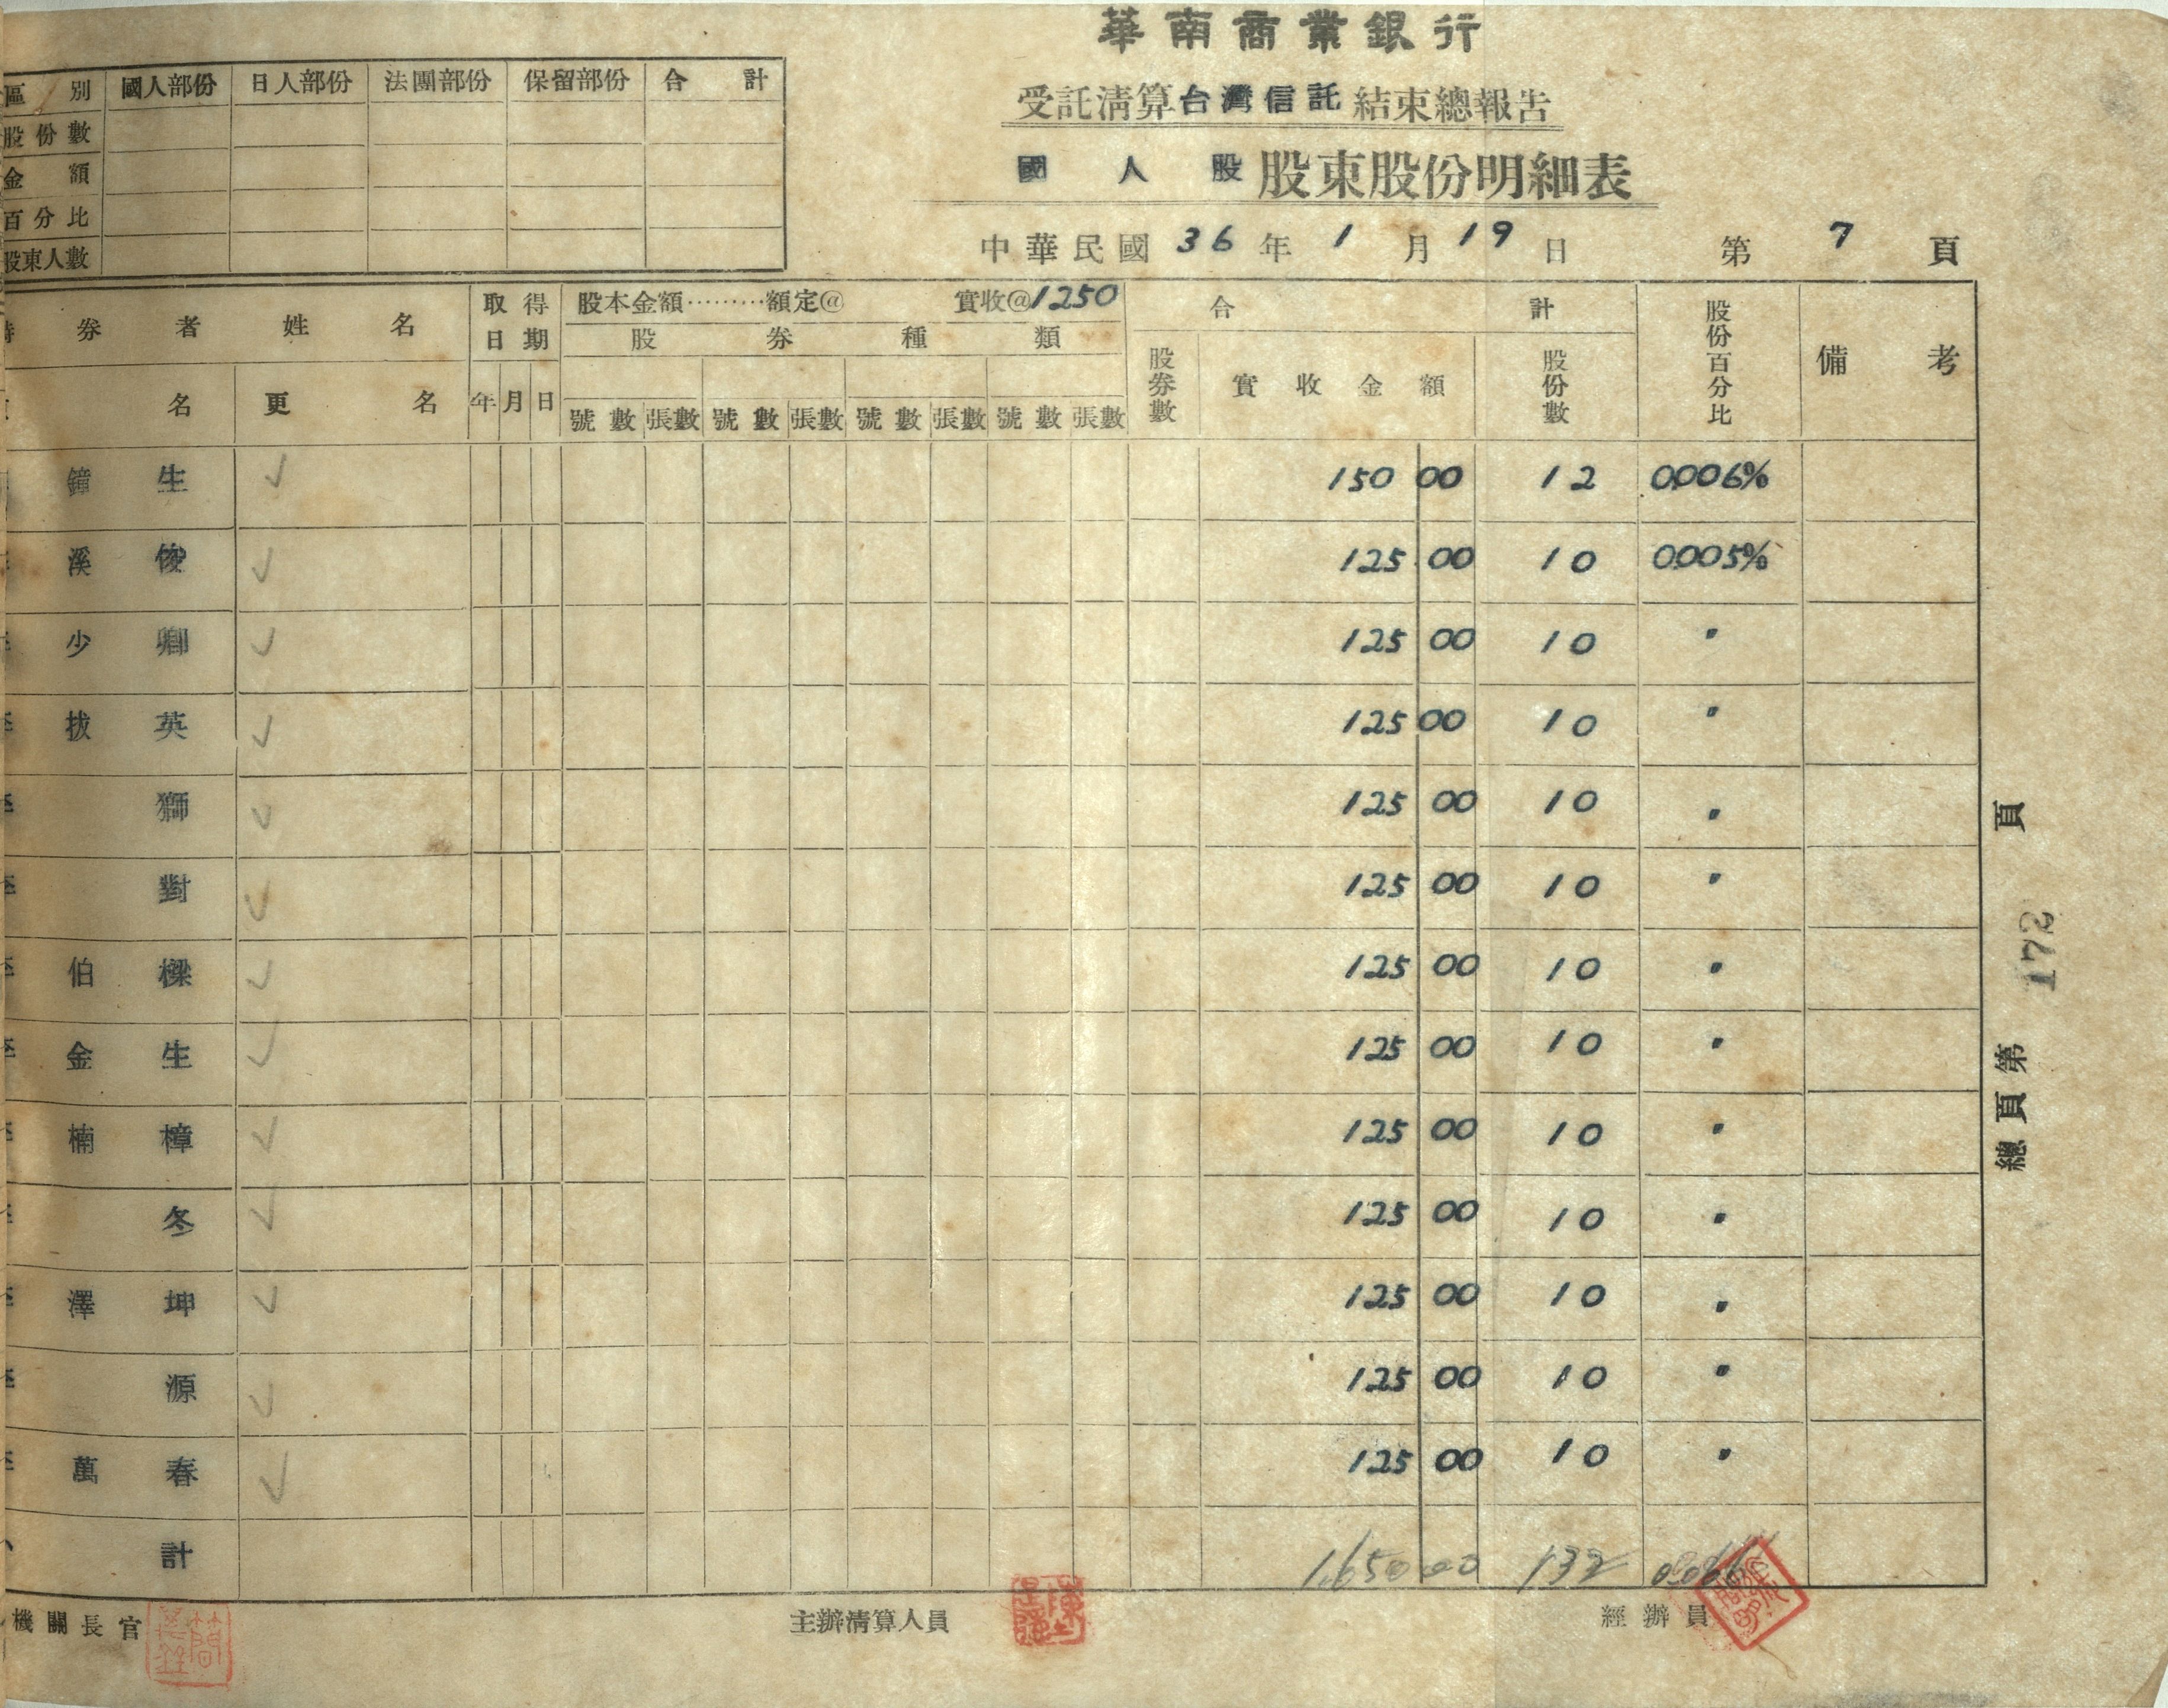 華南商業銀行
受託清算台灣信託結束總報告
國人股 股東股份明細表
中華民國36年1月19日 第7頁
區別 國人部份 日人部份 法團部份 保留部份 合計
股份數
金額
百分比
股東人數
券者姓名 取得日期 股本金額………額定@ 實收@1250 合計 股份百分比 備考
股券種類
名 更名 年 月 日 號數 張數 號數 張數 號數 張數 號數 張數 股券數 實收金額 股份數
鐘生 150 00 12 0.006%
溪俊 125 00 10 0.005%
少卿 125 00 10 〃
拔英 125 00 10 〃
獅 125 00 10 〃
對 125 00 10 〃
伯樑 125 00 10 〃
金生 125 00 10 〃
楠樟 125 00 10 〃
冬 125 00 10 〃
澤坤 125 00 10 〃
源 125 00 10 〃
萬春 125 00 10 〃
計 1,650 00 132
機關長官 主辦清算人員 經辦員
總頁第 172 頁